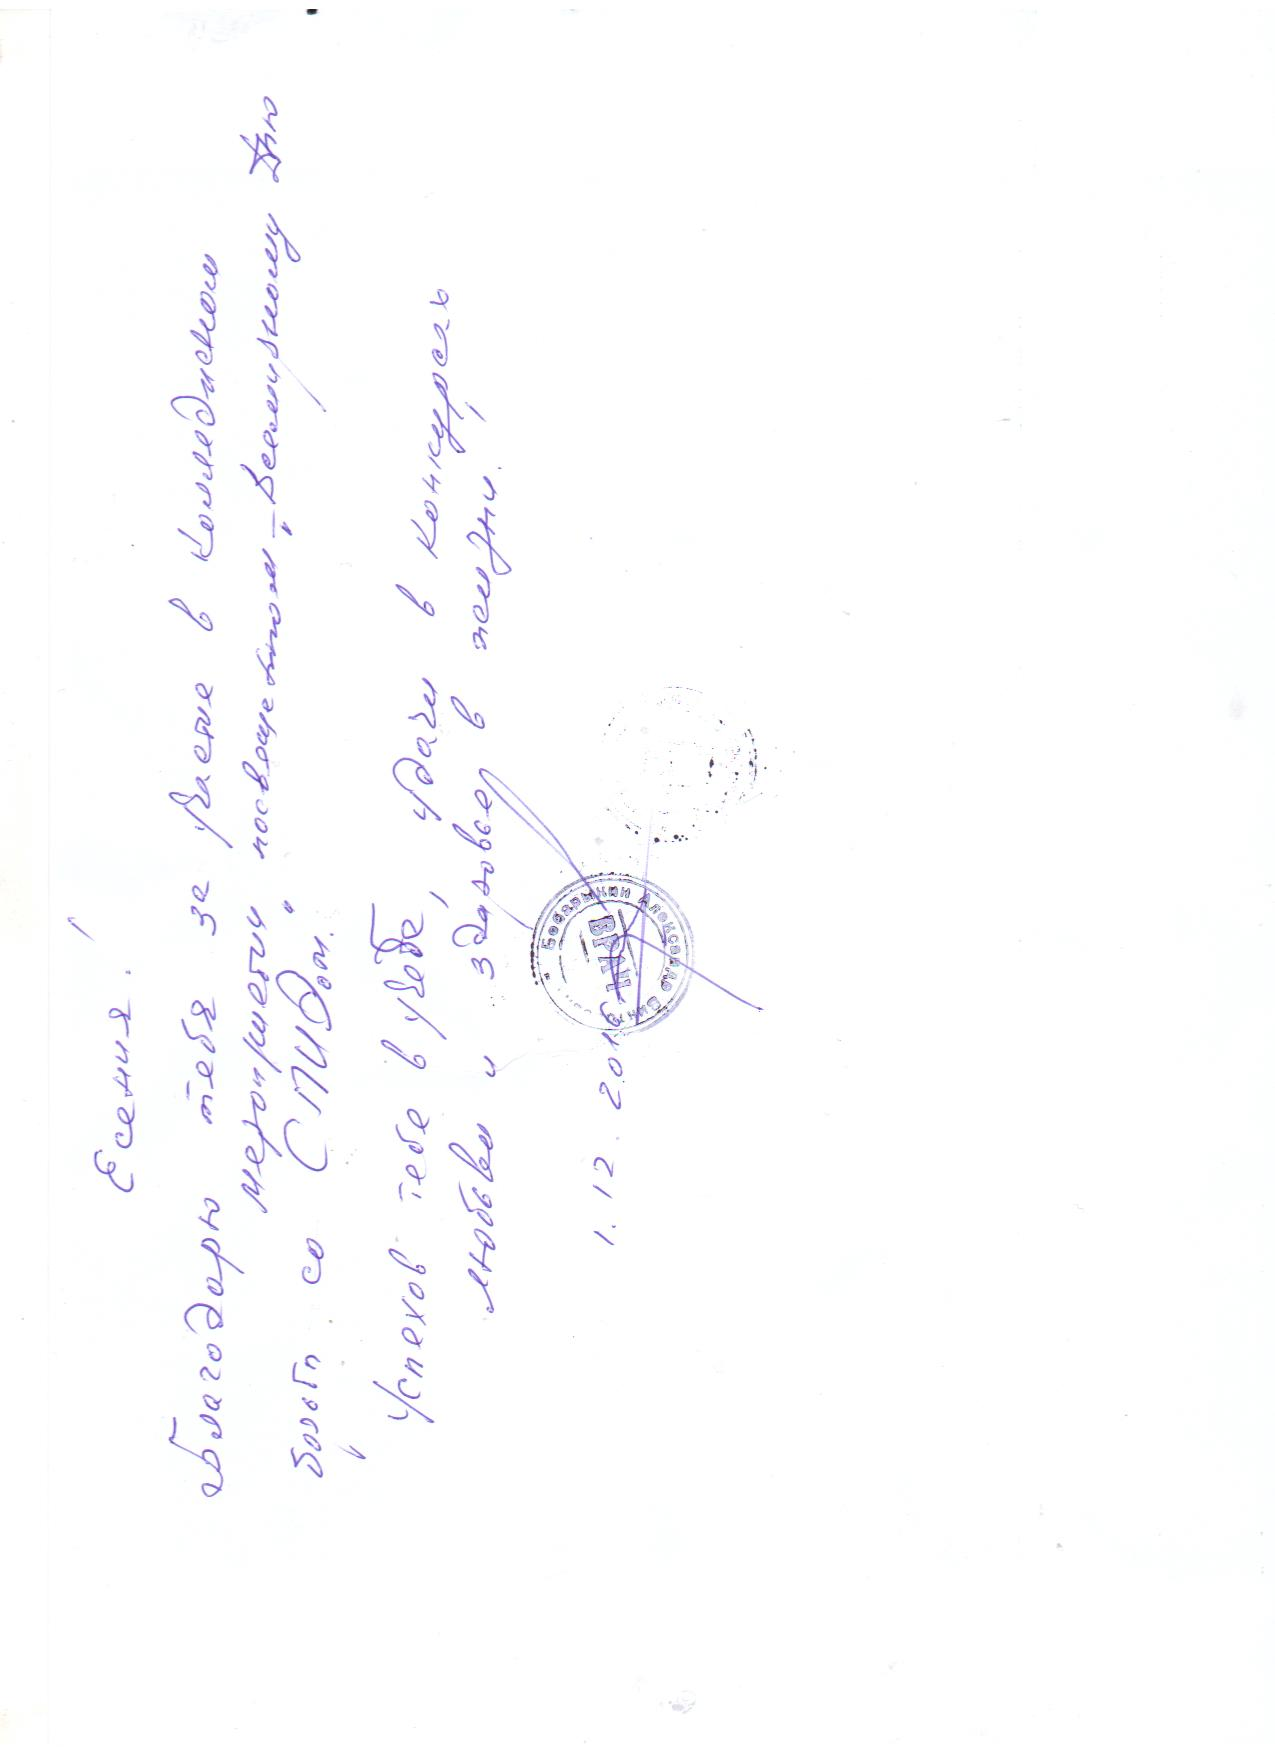 Есения!
Благодарю тебя за участие в колледжном
мероприятии, посвященном „Всемирному Дню
борьбы со СПИДом."
Успехов тебе в учебе, удачи в конкурсах,
любви и здоровье в жизни.
1. 12. 2019
Бобарыкин Александр Викт
ВРАЧ